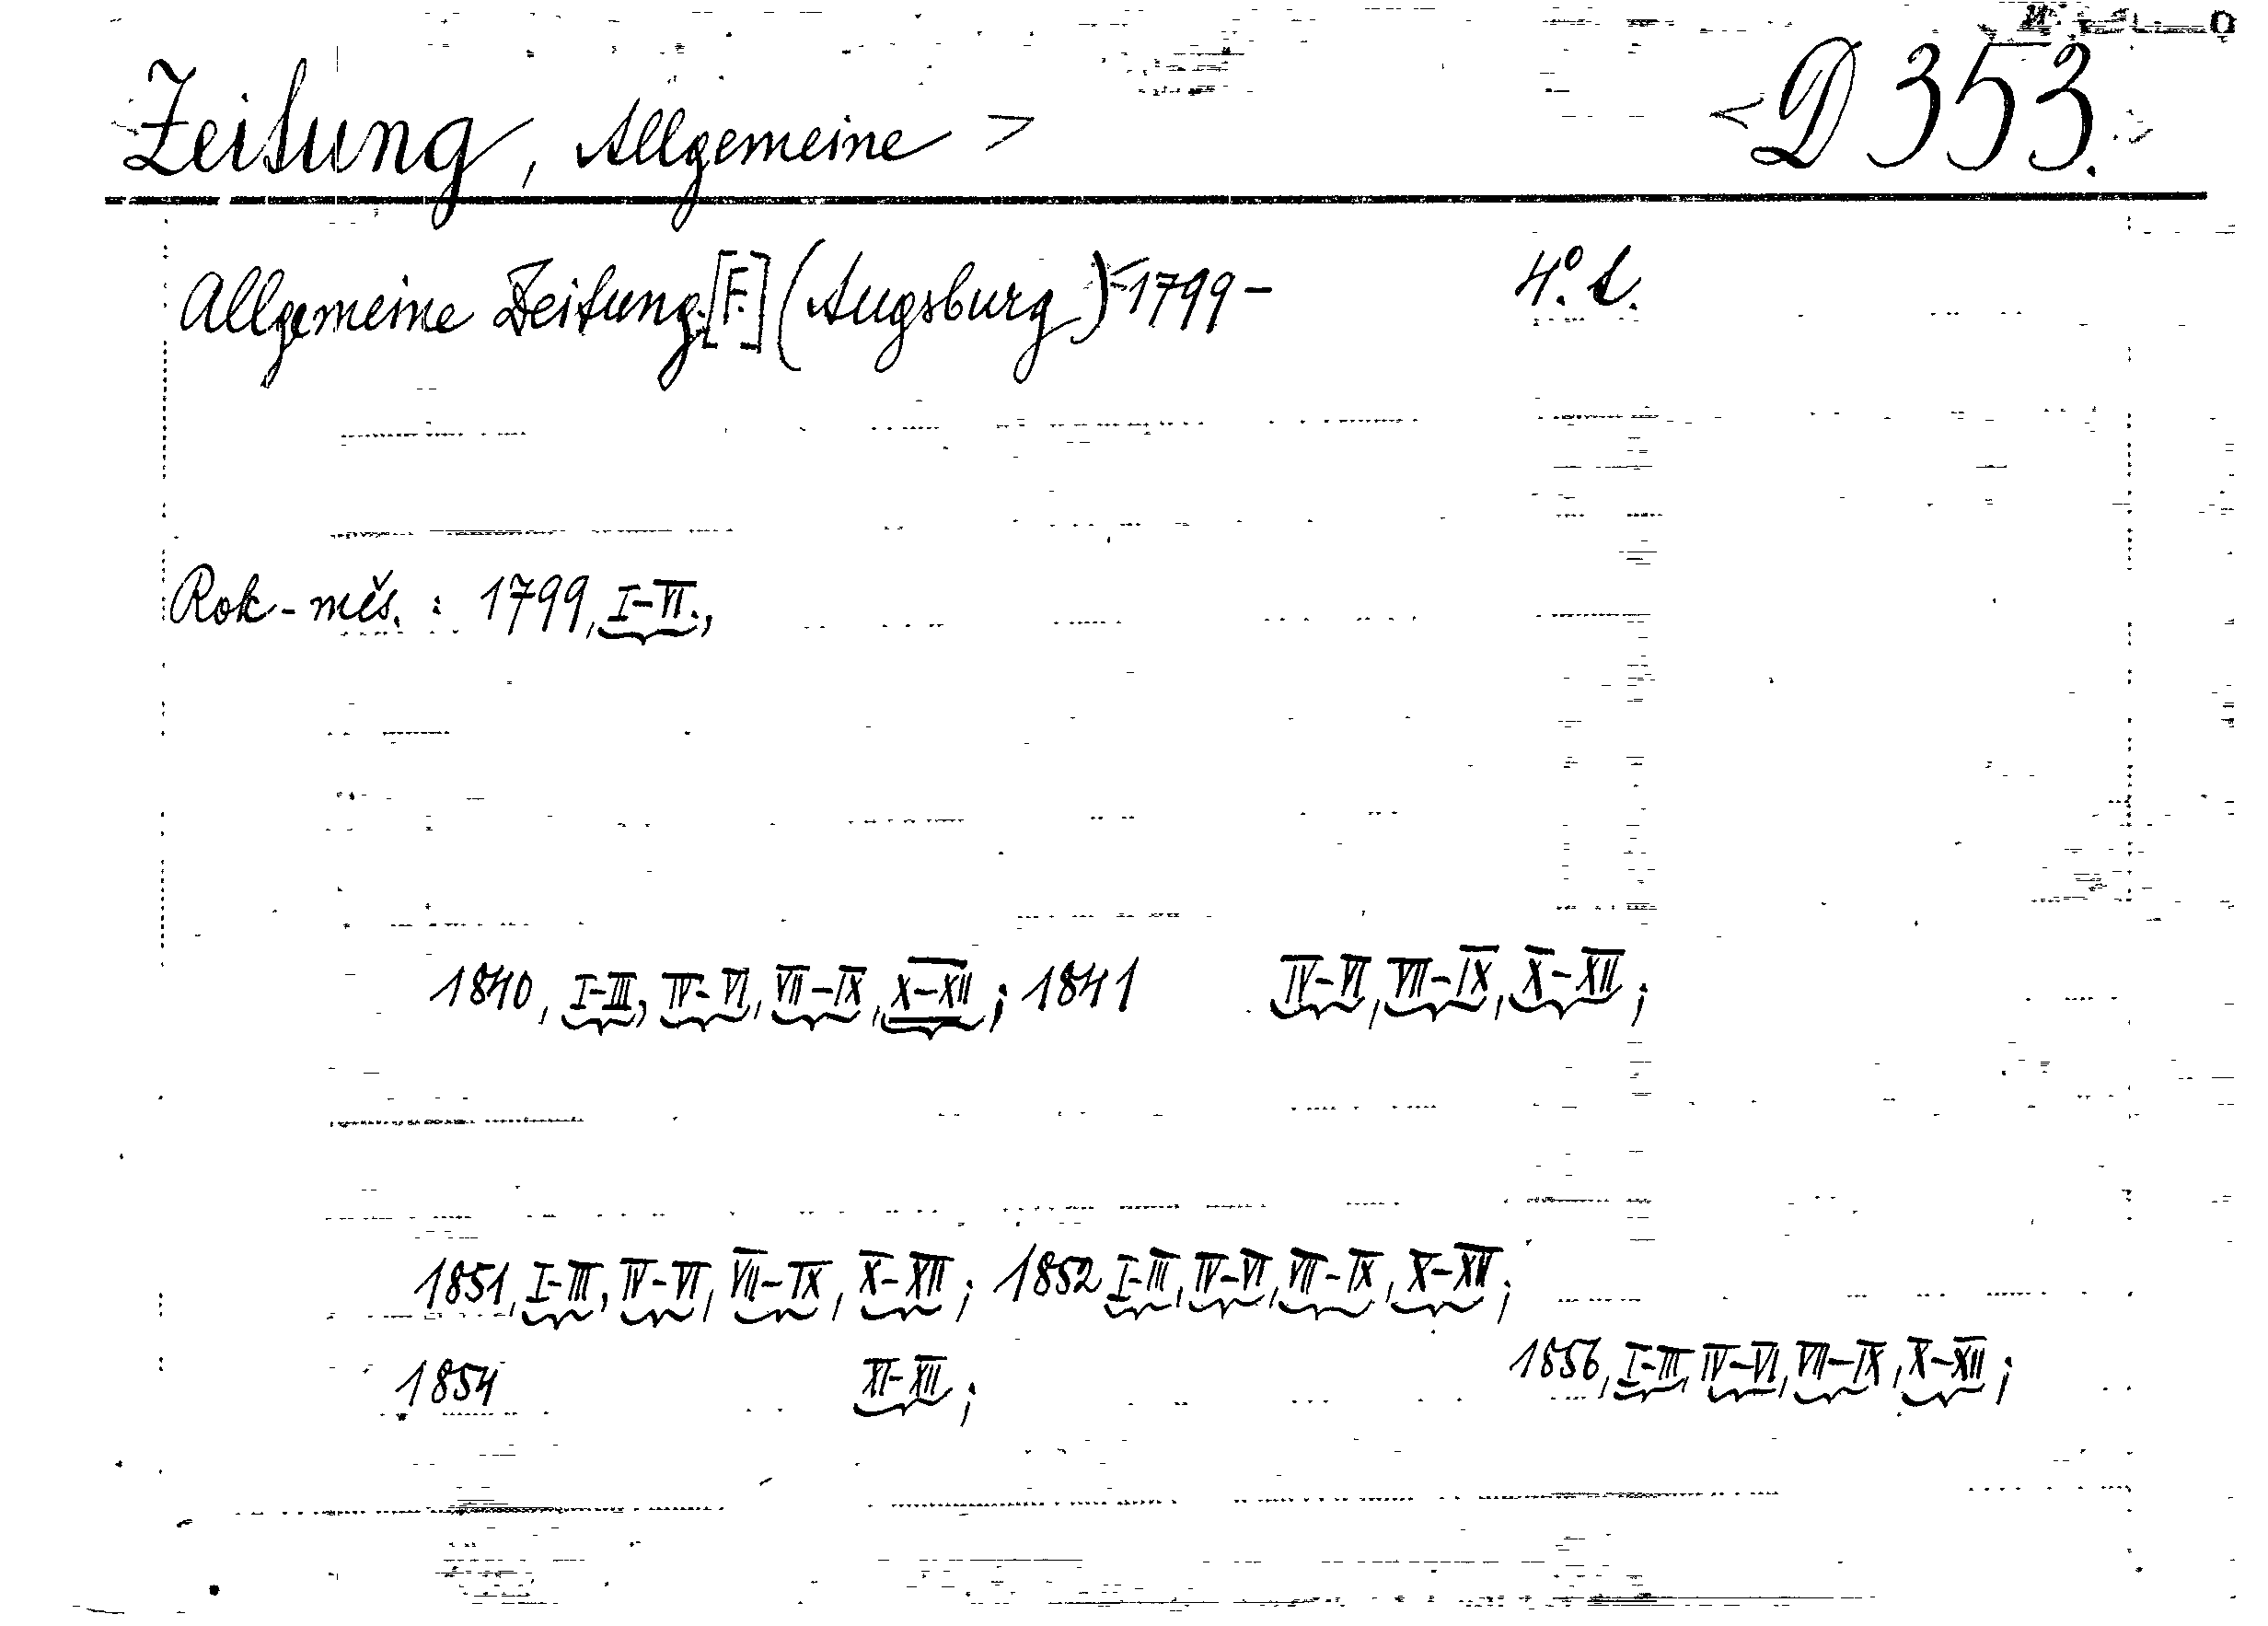 Zeitung, Allgemeine > <D 353.
Allgemeine Zeitung. [F.] (Augsburg) <1799 - 4°. L.
Rok - měs. : 1799, I-VI.,
1840, I-III, IV-VI, VII-IX, X-XII; 1841 IV-VI, VII-IX, X-XII;
1851, I-III, IV-VI, VII-IX, X-XII; 1852 I-III, IV-VI, VII-IX, X-XII;
1854 XI-XII; 1856, I-III, IV-VI, VII-IX, X-XII;